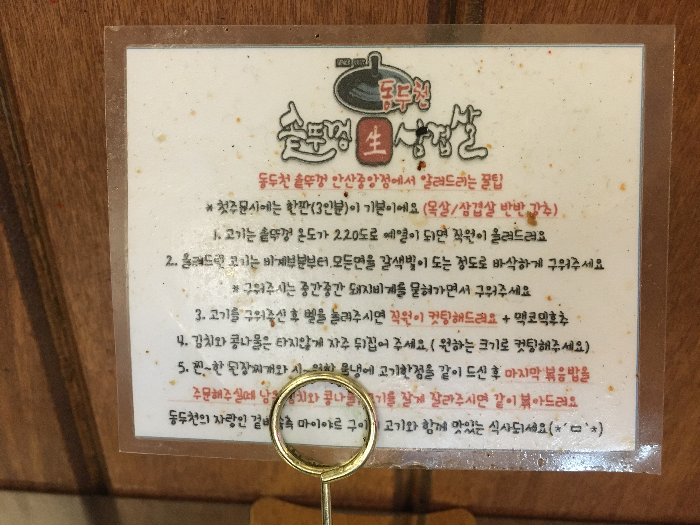 동두천
솥뚜껑 生 삼겹살
동두천 솥뚜껑 안산중앙점에서 알려드리는 꿀팁
* 첫주문시에는 한판(3인분)이 기본이에요 (목살/삼겹살 반반 강추)
1. 고기는 솥뚜껑 온도가 220도로 예열이 되면 직원이 올려드려요
2. 올려드린 고기는 비계부분부터 모든면을 갈색빛이 도는 정도로 바삭하게 구워주세요
* 구워주시는 중간중간 돼지비계를 묻혀가면서 구워주세요
3. 고기를 구워주신 후 벨을 눌러주시면 직원이 컷팅해드려요 + 맥코믹후추
4. 김치와 콩나물은 타지않게 자주 뒤집어 주세요 ( 원하는 크기로 컷팅해주세요)
5. 찐~한 된장찌개와 시~원한 물냉에 고기한점을 같이 드신 후 마지막 볶음밥을
주문해주실때 남은 김치와 콩나물 고기를 잘게 잘라주시면 같이 볶아드려요
동두천의 자랑인 겉바속촉 마이야르 구이 고기와 함께 맛있는 식사되세요(*´ㅁ`*)